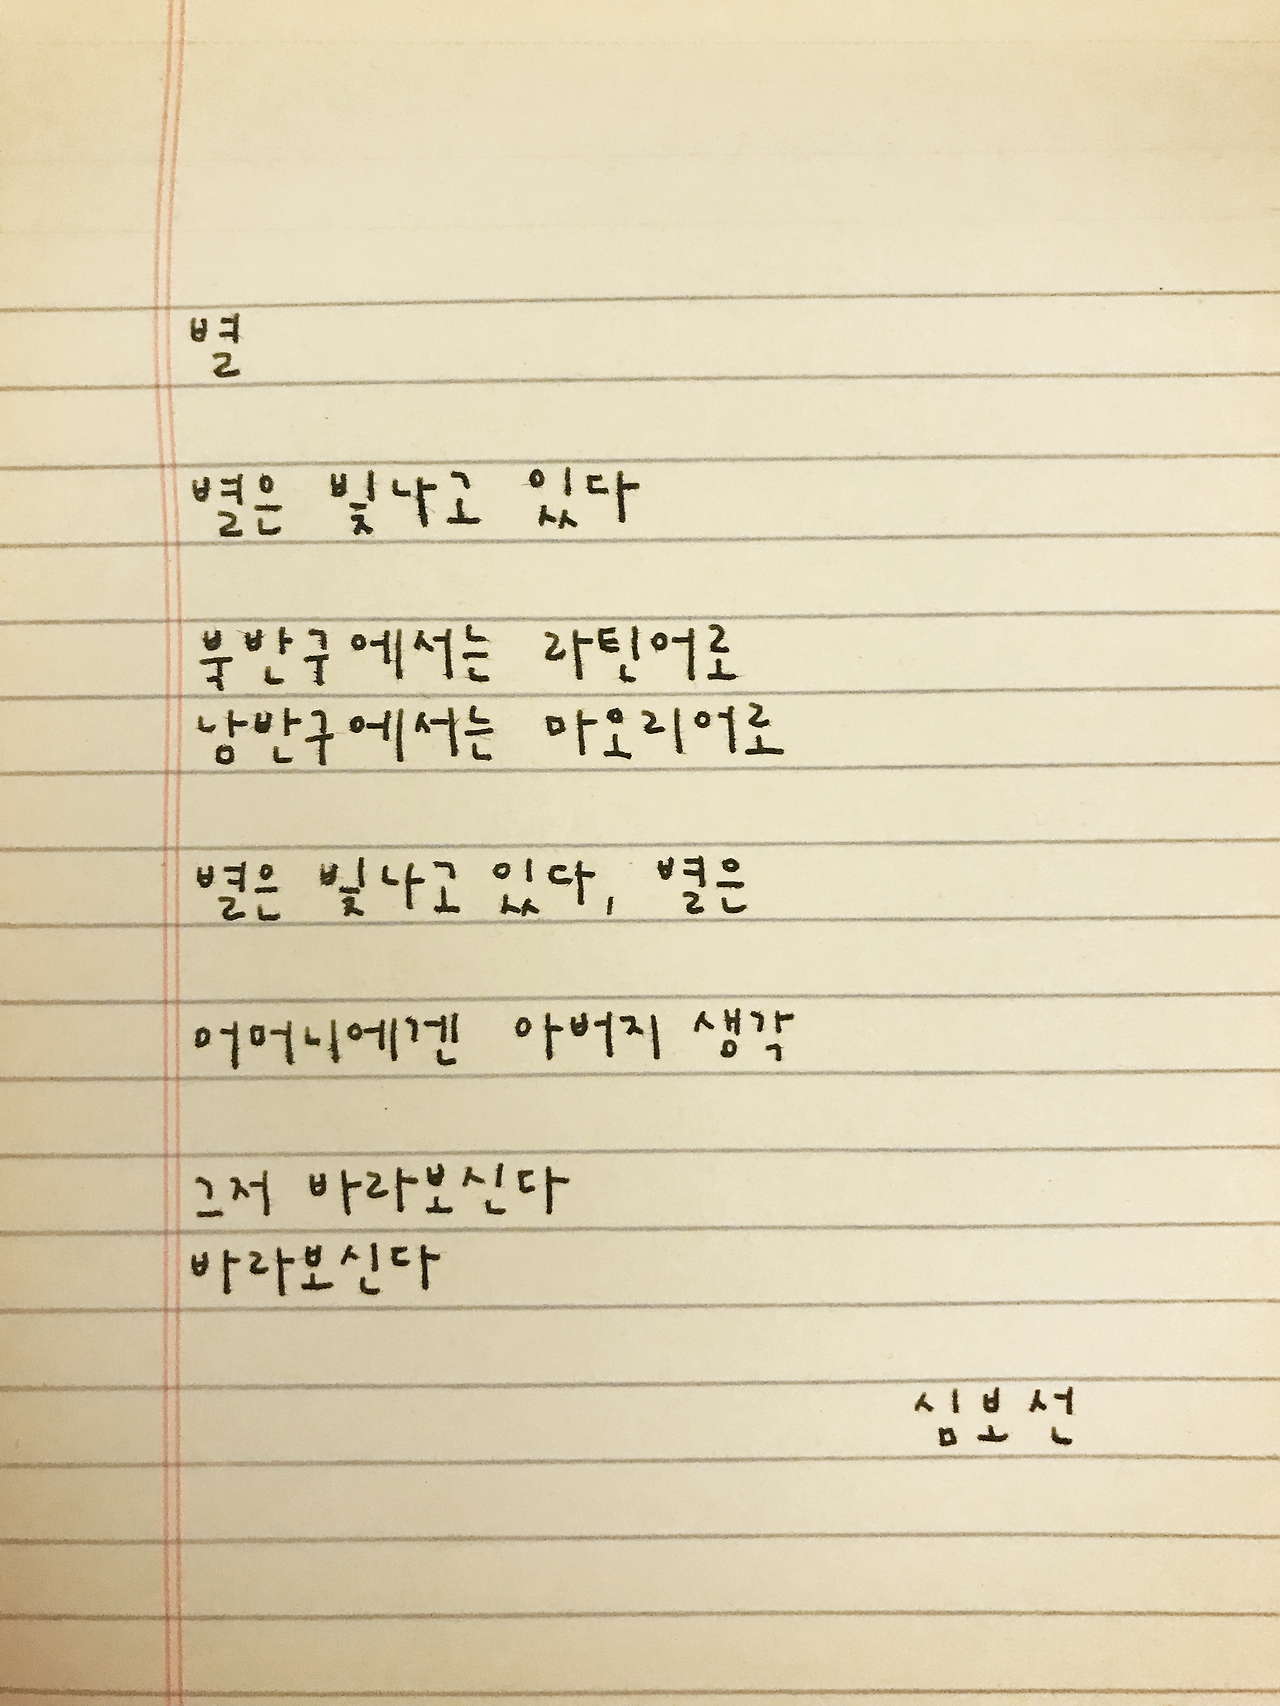 별
별은 빛나고 있다
북반구에서는 라틴어로
남반구에서는 마오리어로
별은 빛나고 있다, 별은
어머니에겐 아버지 생각
그저 바라보신다
바라보신다
심보선